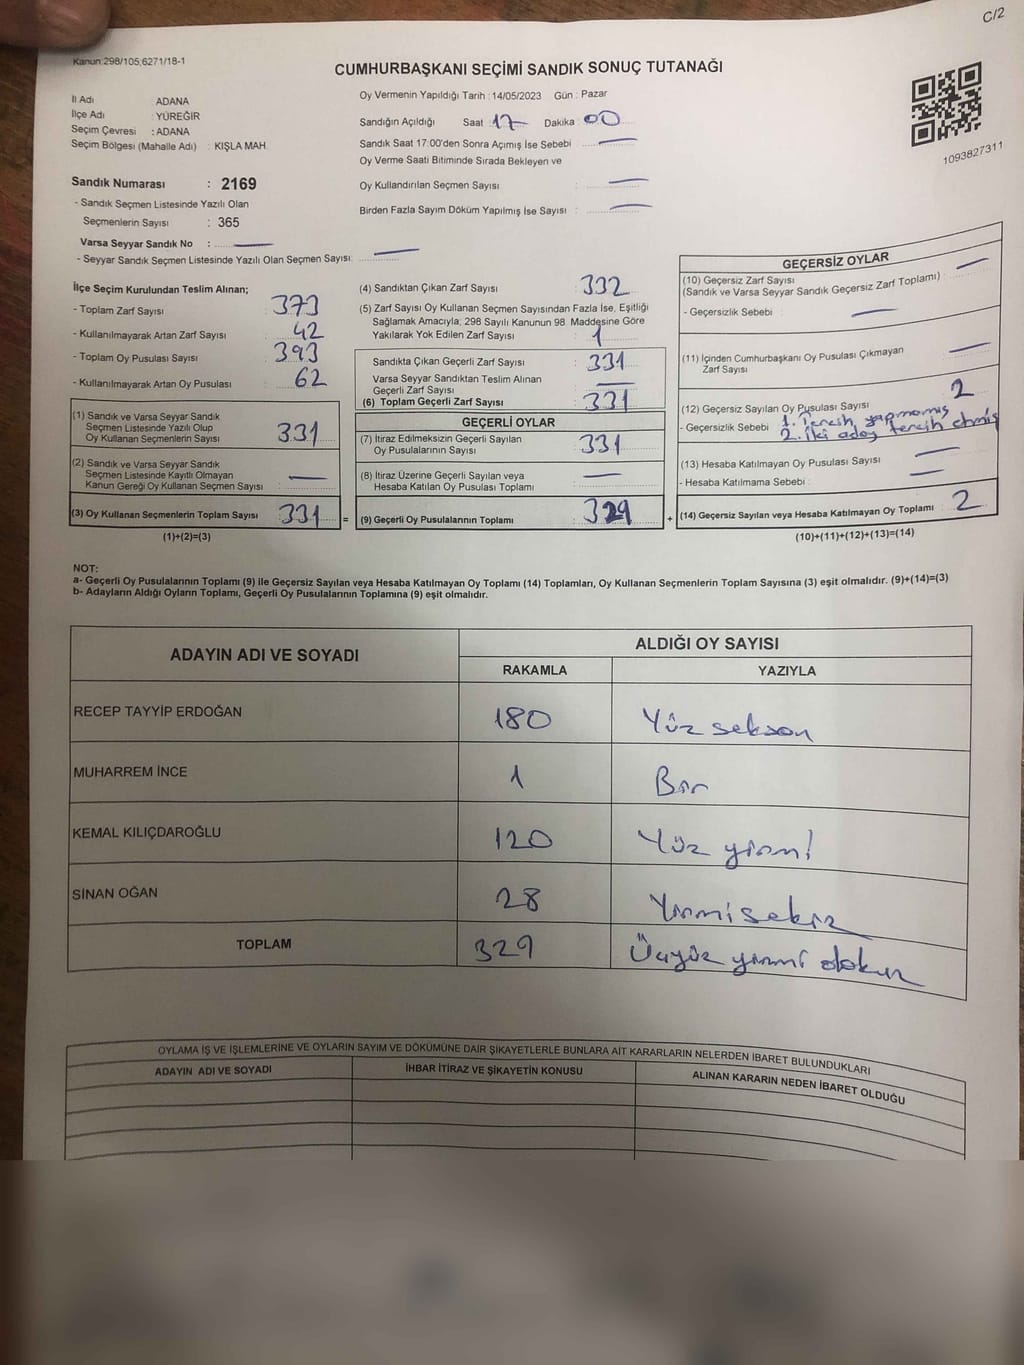 C/2
Kanun:298/105,6271/18-1
CUMHURBAŞKANI SEÇİMİ SANDIK SONUÇ TUTANAĞI
1093827311
İl Adı ADANA
İlçe Adı : YÜREĞİR
Seçim Çevresi : ADANA
Seçim Bölgesi (Mahalle Adı) : KIŞLA MAH.
Sandık Numarası : 2169
- Sandık Seçmen Listesinde Yazılı Olan
Seçmenlerin Sayısı : 365
Varsa Seyyar Sandık No :
- Seyyar Sandık Seçmen Listesinde Yazılı Olan Seçmen Sayısı:
Oy Vermenin Yapıldığı Tarih : 14/05/2023 Gün : Pazar
Sandığın Açıldığı Saat : 17 Dakika : 00
Sandık Saat 17:00'den Sonra Açımış İse Sebebi :
Oy Verme Saati Bitiminde Sırada Bekleyen ve
Oy Kullandırılan Seçmen Sayısı :
Birden Fazla Sayım Döküm Yapılmış İse Sayısı :
İlçe Seçim Kurulundan Teslim Alınan;
- Toplam Zarf Sayısı : 373
- Kullanılmayarak Artan Zarf Sayısı : 42
- Toplam Oy Pusulası Sayısı : 393
- Kullanılmayarak Artan Oy Pusulası : 62
(1) Sandık ve Varsa Seyyar Sandık
Seçmen Listesinde Yazılı Olup
Oy Kullanan Seçmenlerin Sayısı : 331
(2) Sandık ve Varsa Seyyar Sandık
Seçmen Listesinde Kayıtlı Olmayan
Kanun Gereği Oy Kullanan Seçmen Sayısı :
(3) Oy Kullanan Seçmenlerin Toplam Sayısı : 331 =
(1)+(2)=(3)
(4) Sandıktan Çıkan Zarf Sayısı : 332
(5) Zarf Sayısı Oy Kullanan Seçmen Sayısından Fazla İse, Eşitliği
Sağlamak Amacıyla; 298 Sayılı Kanunun 98. Maddesine Göre
Yakılarak Yok Edilen Zarf Sayısı : 1
Sandıkta Çıkan Geçerli Zarf Sayısı : 331
Varsa Seyyar Sandıktan Teslim Alınan
Geçerli Zarf Sayısı :
(6) Toplam Geçerli Zarf Sayısı : 331
GEÇERLİ OYLAR
(7) İtiraz Edilmeksizin Geçerli Sayılan
Oy Pusulalarının Sayısı : 331
(8) İtiraz Üzerine Geçerli Sayılan veya
Hesaba Katılan Oy Pusulası Toplamı :
(9) Geçerli Oy Pusulalarının Toplamı : 329 +
GEÇERSİZ OYLAR
(10) Geçersiz Zarf Sayısı
(Sandık ve Varsa Seyyar Sandık Geçersiz Zarf Toplamı) :
- Geçersizlik Sebebi :
(11) İçinden Cumhurbaşkanı Oy Pusulası Çıkmayan
Zarf Sayısı :
(12) Geçersiz Sayılan Oy Pusulası Sayısı : 2
- Geçersizlik Sebebi : 1. Tercih yapmamış
2. İki aday tercih etmiş
(13) Hesaba Katılmayan Oy Pusulası Sayısı :
- Hesaba Katılmama Sebebi :
(14) Geçersiz Sayılan veya Hesaba Katılmayan Oy Toplamı : 2
(10)+(11)+(12)+(13)=(14)
NOT:
a- Geçerli Oy Pusulalarının Toplamı (9) ile Geçersiz Sayılan veya Hesaba Katılmayan Oy Toplamı (14) Toplamları, Oy Kullanan Seçmenlerin Toplam Sayısına (3) eşit olmalıdır. (9)+(14)=(3)
b- Adayların Aldığı Oyların Toplamı, Geçerli Oy Pusulalarının Toplamına (9) eşit olmalıdır.
ADAYIN ADI VE SOYADI ALDIĞI OY SAYISI
RAKAMLA YAZIYLA
RECEP TAYYİP ERDOĞAN 180 Yüz seksen
MUHARREM İNCE 1 Bir
KEMAL KILIÇDAROĞLU 120 Yüz yirmi
SİNAN OĞAN 28 Yirmisekiz
TOPLAM 329 Üçyüz yirmi dokuz
OYLAMA İŞ VE İŞLEMLERİNE VE OYLARIN SAYIM VE DÖKÜMÜNE DAİR ŞİKAYETLERLE BUNLARA AİT KARARLARIN NELERDEN İBARET BULUNDUKLARI
ADAYIN ADI VE SOYADI İHBAR İTİRAZ VE ŞİKAYETİN KONUSU ALINAN KARARIN NEDEN İBARET OLDUĞU